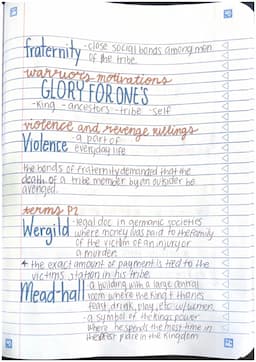 fraternity - close social bonds among men
of the tribe.
warrior's motivations
GLORY FOR ONE'S
-king -ancestors -tribe -self
violence and revenge killings
Violence - a part of
everyday life
the bonds of fraternity demanded that the
death of a tribe member by an outsider be
avenged.
terms P2
Wergild - legal doc in germanic societies
where money was paid to the family
of the victim of an injury or
a murder.
the exact amount of payment is tied to the
victims station in his tribe
Mead-hall - a building with a large central
room where the king & thanes
feast, drink, play, etc w/ women.
a symbol of the kings power
where he spends the most time in
the place in the kingdom